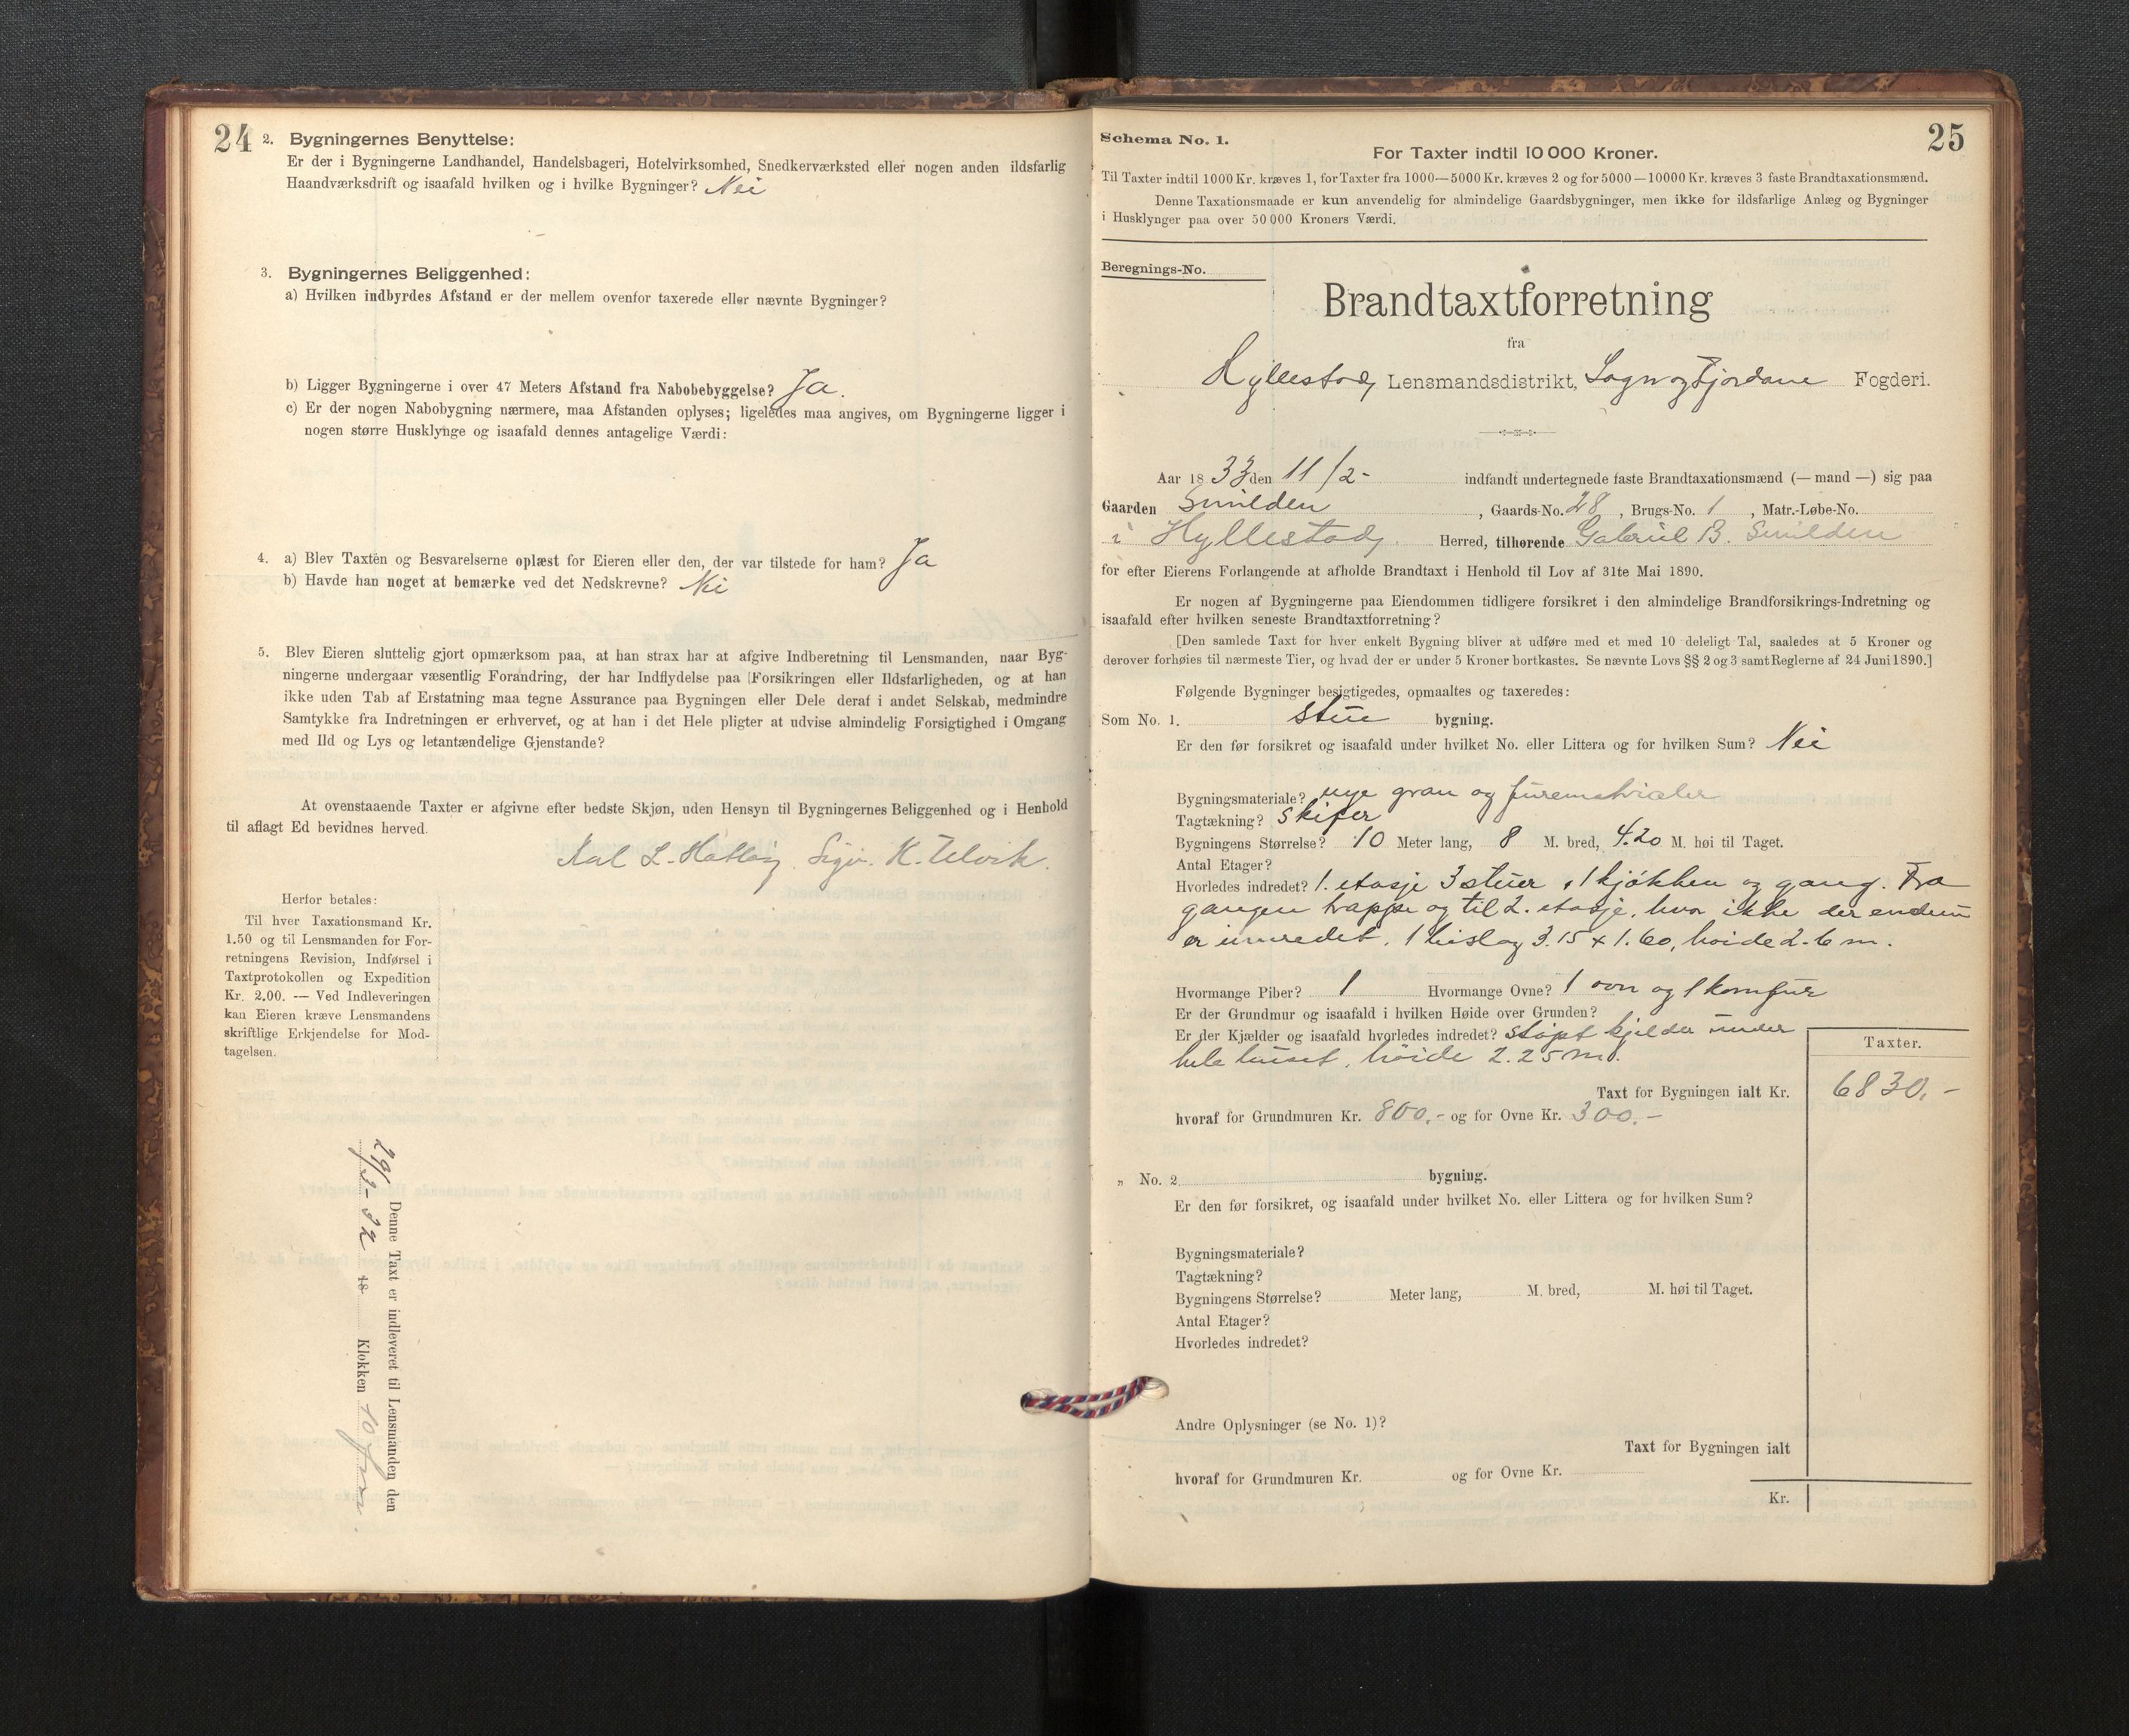 24
2. Bygningernes Benyttelse:
Er der i Bygningerne Landhandel, Handelsbageri, Hotelvirksomhed, Snedkerværksted eller nogen anden ildsfarlig
Haandværksdrift og isaafald hvilken og i hvilke Bygninger? Nei
3. Bygningernes Beliggenhed:
a) Hvilken indbyrdes Afstand er der mellem ovenfor taxerede eller nævnte Bygninger?
b) Ligger Bygningerne i over 47 Meters Afstand fra Nabobebyggelse? Ja.
c) Er der nogen Nabobygning nærmere, maa Afstanden oplyses; ligeledes maa angives, om Bygningerne ligger i
nogen større Husklynge og isaafald dennes antagelige Værdi:
4. a) Blev Taxten og Besvarelserne oplæst for Eieren eller den, der var tilstede for ham? Ja
b) Havde han noget at bemærke ved det Nedskrevne? Nei
5. Blev Eieren sluttelig gjort opmærksom paa, at han strax har at afgive Indberetning til Lensmanden, naar Byg-
ningerne undergaar væsentlig Forandring, der har Indflydelse paa Forsikringen eller Ildsfarligheden, og at han
ikke uden Tab af Erstatning maa tegne Assurance paa Bygningen eller Dele deraf i andet Selskab, medmindre
Samtykke fra Indretningen er erhvervet, og at han i det Hele pligter at udvise almindelig Forsigtighed i Omgang
med Ild og Lys og letantændelige Gjenstande?
At ovenstaaende Taxter er afgivne efter bedste Skjøn, uden Hensyn til Bygningernes Beliggenhed og i Henhold
til aflagt Ed bevidnes herved.
Karl L. Hatløy Sigv. K. Ulvik.
Herfor betales:
Til hver Taxationsmand Kr.
1.50 og til Lensmanden for For-
retningens Revision, Indførsel i
Taxtprotokollen og Expedition
Kr. 2.00. — Ved Indleveringen
kan Eieren kræve Lensmandens
skriftlige Erkjendelse for Mod-
tagelsen.
Denne Taxt er indleveret til Lensmanden den
29/3-32 18 Klokken 10 fm
25
Schema No. 1.
For Taxter indtil 10 000 Kroner.
Til Taxter indtil 1000 Kr. kræves 1, for Taxter fra 1000—5000 Kr. kræves 2 og for 5000—10000 Kr. kræves 3 faste Brandtaxationsmænd.
Denne Taxationsmaade er kun anvendelig for almindelige Gaardsbygninger, men ikke for ildsfarlige Anlæg og Bygninger
i Husklynger paa over 50 000 Kroners Værdi.
Beregnings-No.
Brandtaxtforretning
fra
Hyllestad Lensmandsdistrikt, Sogn og Fjordane Fogderi.
Aar 18 33 den 11/2- indfandt undertegnede faste Brandtaxationsmænd (— mand —) sig paa
Gaarden Smilden, Gaards-No. 28, Brugs-No. 1, Matr.-Løbe-No.
i Hyllestad Herred, tilhørende Gabriel B. Smilden
for efter Eierens Forlangende at afholde Brandtaxt i Henhold til Lov af 31te Mai 1890.
Er nogen af Bygningerne paa Eiendommen tidligere forsikret i den almindelige Brandforsikrings-Indretning og
isaafald efter hvilken seneste Brandtaxtforretning?
[Den samlede Taxt for hver enkelt Bygning bliver at udføre med et med 10 deleligt Tal, saaledes at 5 Kroner og
derover forhøies til nærmeste Tier, og hvad der er under 5 Kroner bortkastes. Se nævnte Lovs §§ 2 og 3 samt Reglerne af 24 Juni 1890.]
Følgende Bygninger besigtigedes, opmaaltes og taxeredes:
Som No. 1. stue bygning.
Er den før forsikret og isaafald under hvilket No. eller Littera og for hvilken Sum? Nei
Bygningsmateriale? nye gran og furematrialer
Tagtækning? skifer
Bygningens Størrelse? 10 Meter lang, 8 M. bred, 4.20 M. høi til Taget.
Antal Etager?
Hvorledes indredet? 1. etasje 3 stuer, 1 kjøkken og gang. Fra
gangen trappe og til 2. etasje, hvor ikke der endnu
er innredet. 1 bislag 3.15 x 1.60, høide 2.6 m.
Hvormange Piber? 1 Hvormange Ovne? 1 ovn og 1 komfur
Er der Grundmur og isaafald i hvilken Høide over Grunden?
Er der Kjælder og isaafald hvorledes indredet? støpt kjelder under
hele huset, høide 2.25 m.
Taxter.
Taxt for Bygningen ialt Kr. 6830,-
hvoraf for Grundmuren Kr. 800,- og for Ovne Kr. 300.-
„ No. 2 bygning.
Er den før forsikret, og isaafald under hvilket No. eller Littera og for hvilken Sum?
Bygningsmateriale?
Tagtækning?
Bygningens Størrelse? Meter lang, M. bred, M. høi til Taget.
Antal Etager?
Hvorledes indredet?
Andre Oplysninger (se No. 1)?
Taxt for Bygningen ialt
hvoraf for Grundmuren Kr. og for Ovne Kr.
Kr.